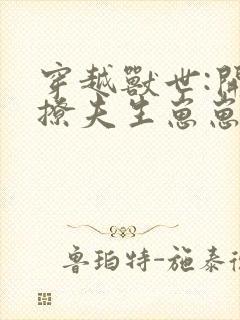 穿越獸世:開
撩夫生崽崽
魯珀特-施泰